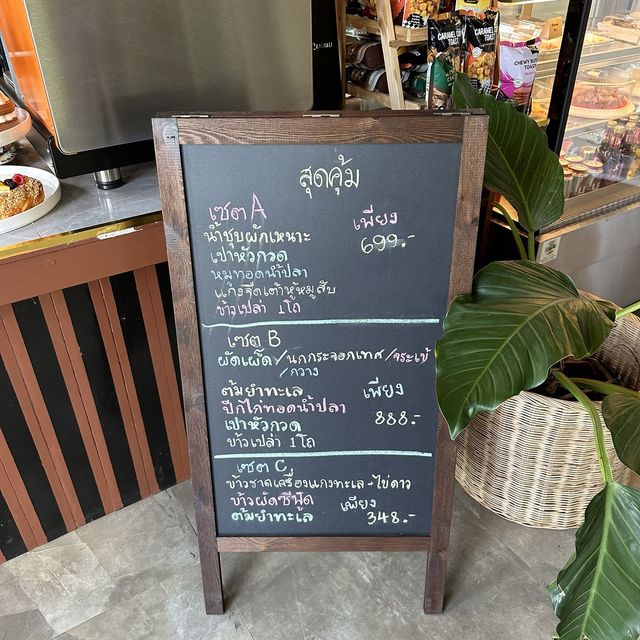 CARAMEL
TOAST
CARAMEL
TOAST
CHEWY
TOAST
สุดคุ้ม
เซต A
เพียง
น้ำชุบผักเหนาะ
699.-
เปาหัวกวด
หมูทอดน้ำปลา
แกงจืดเต้าหู้หมูสับ
ข้าวเปล่า 1โถ
เซต B
ผัดเผ็ด/นกกระจอกเทศ/จระเข้
/กวาง
ต้มยำทะเล
เพียง
ปีกไก่ทอดน้ำปลา
888.-
เปาหัวกวด
ข้าวเปล่า 1โถ
เซต C
ข้าวราดเครื่องแกงทะเล+ไข่ดาว
ข้าวผัดซีฟู้ด
เพียง
ต้มยำทะเล
348.-